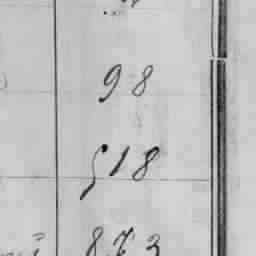 98
518
873